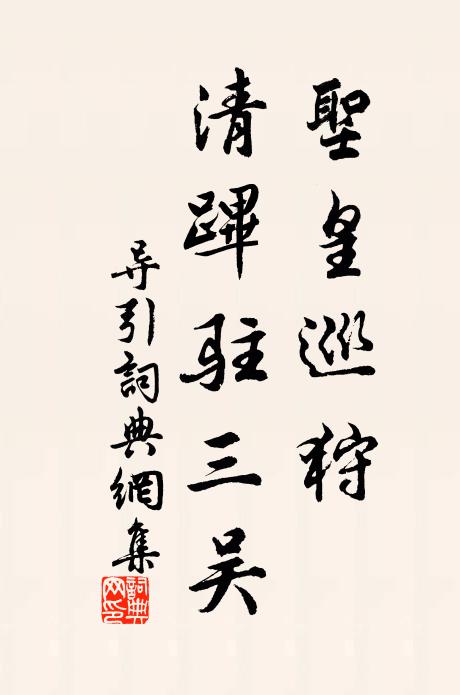 聖皇巡狩
清蹕駐三吳
导引詞典網集
詞典網印